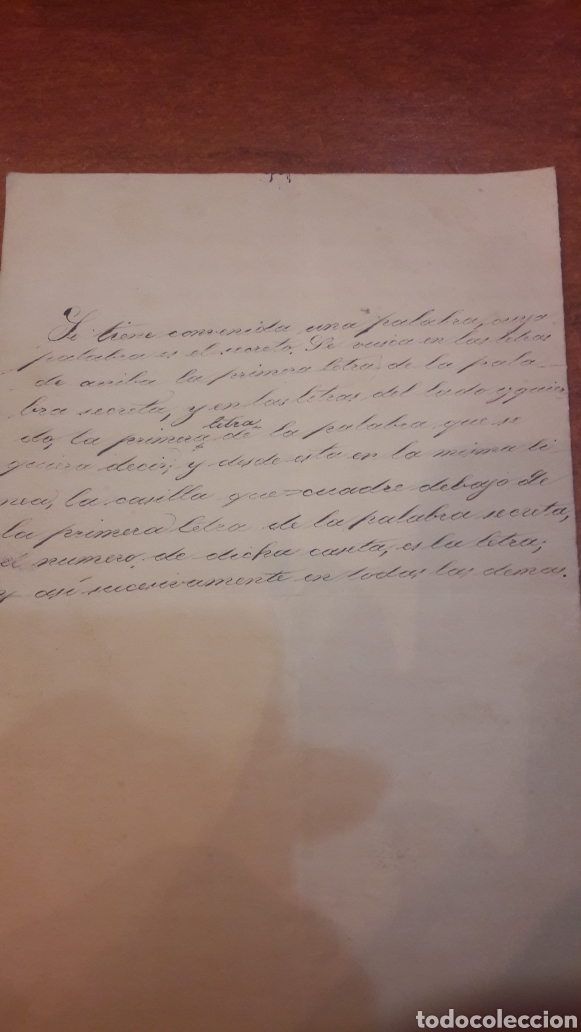 Se tiene convenida una palabra, cuya
palabra es el secreto. Se busca en las letras
de arriba la primera letra de la pala-
bra secreta, y en las letras del lado izquier
do, la primera letra de la palabra que se
quiera decir; y desde esta en la misma li
nea, la casilla que cuadre debajo de
la primera letra de la palabra secreta,
el numero de dicha casilla, es la letra;
y así sucesivamente en todas las demas.
todocoleccion